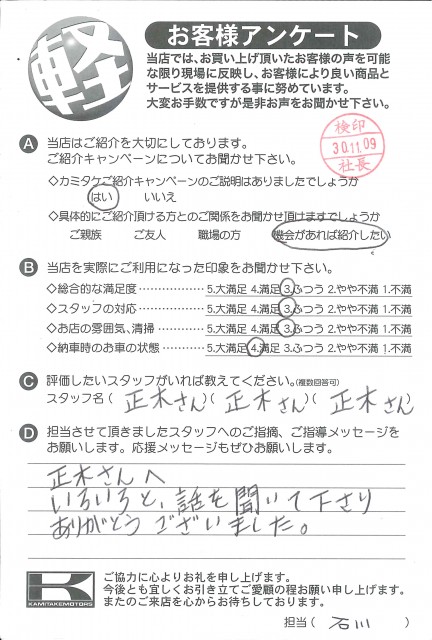 軽
お客様アンケート
当店では、お買い上げ頂いたお客様の声を可能
な限り現場に反映し、お客様により良い商品と
サービスを提供する事に努めています。
大変お手数ですが是非お声をお聞かせ下さい。
検印
30.11.09
社長
A 当店はご紹介を大切にしております。
ご紹介キャンペーンについてお聞かせ下さい。
◇カミタケご紹介キャンペーンのご説明はありましたでしょうか
はい いいえ
◇具体的にご紹介頂ける方とのご関係をお聞かせ頂けますでしょうか
ご親族 ご友人 職場の方 機会があれば紹介したい
B 当店を実際にご利用になった印象をお聞かせ下さい。
◇総合的な満足度 ‥‥‥‥‥ 5.大満足 4.満足 3.ふつう 2.やや不満 1.不満
◇スタッフの対応 ‥‥‥‥‥ 5.大満足 4.満足 3.ふつう 2.やや不満 1.不満
◇お店の雰囲気、清掃 ‥‥‥ 5.大満足 4.満足 3.ふつう 2.やや不満 1.不満
◇納車時のお車の状態 ‥‥‥ 5.大満足 4.満足 3.ふつう 2.やや不満 1.不満
C 評価したいスタッフがいれば教えてください。(複数回答可)
スタッフ名( 正木さん )( 正木さん )( 正木さん )
D 担当させて頂きましたスタッフへのご指摘、ご指導メッセージを
お願いします。応援メッセージもぜひお願いします。
正木さんへ
いろいろと、話を聞いて下さり
ありがとうございました。
K
KAMITAKEMOTORS
ご協力に心よりお礼を申し上げます。
今後とも宜しくお引き立てご愛顧の程お願い申し上げます。
またのご来店を心からお待ちしております。
担当( 石川 )